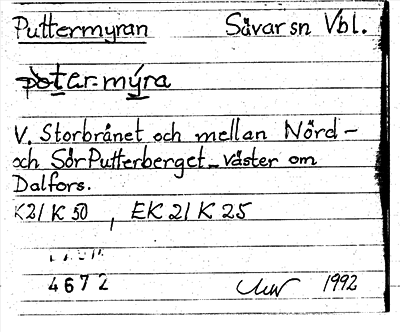 Puttermyran Sävar sn Vbl.
poter-mýra
V. Storbrånet och mellan Nörd-
och Sör Putterberget - väster om
Dalfors.
K21 K 50, EK 21 K 25
4672 1992